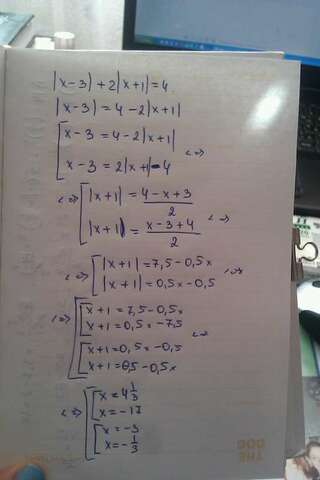 |x-3|+2|x+1|=4
|x-3|=4-2|x+1|
[x-3=4-2|x+1|
x-3=2|x+1|-4 <=>
<=> [|x+1|=\frac{4-x+3}{2}
|x+1|=\frac{x-3+4}{2} <=>
<=> [|x+1|=7,5-0,5x
|x+1|=0,5x-0,5 <=>
<=> [[x+1=7,5-0,5x
x+1=0,5x-7,5
[x+1=0,5x-0,5 <=>
x+1=0,5-0,5x
<=> [[x=4\frac{1}{3}
x=-17
[x=-3
x=-\frac{1}{3}
THE
DOC